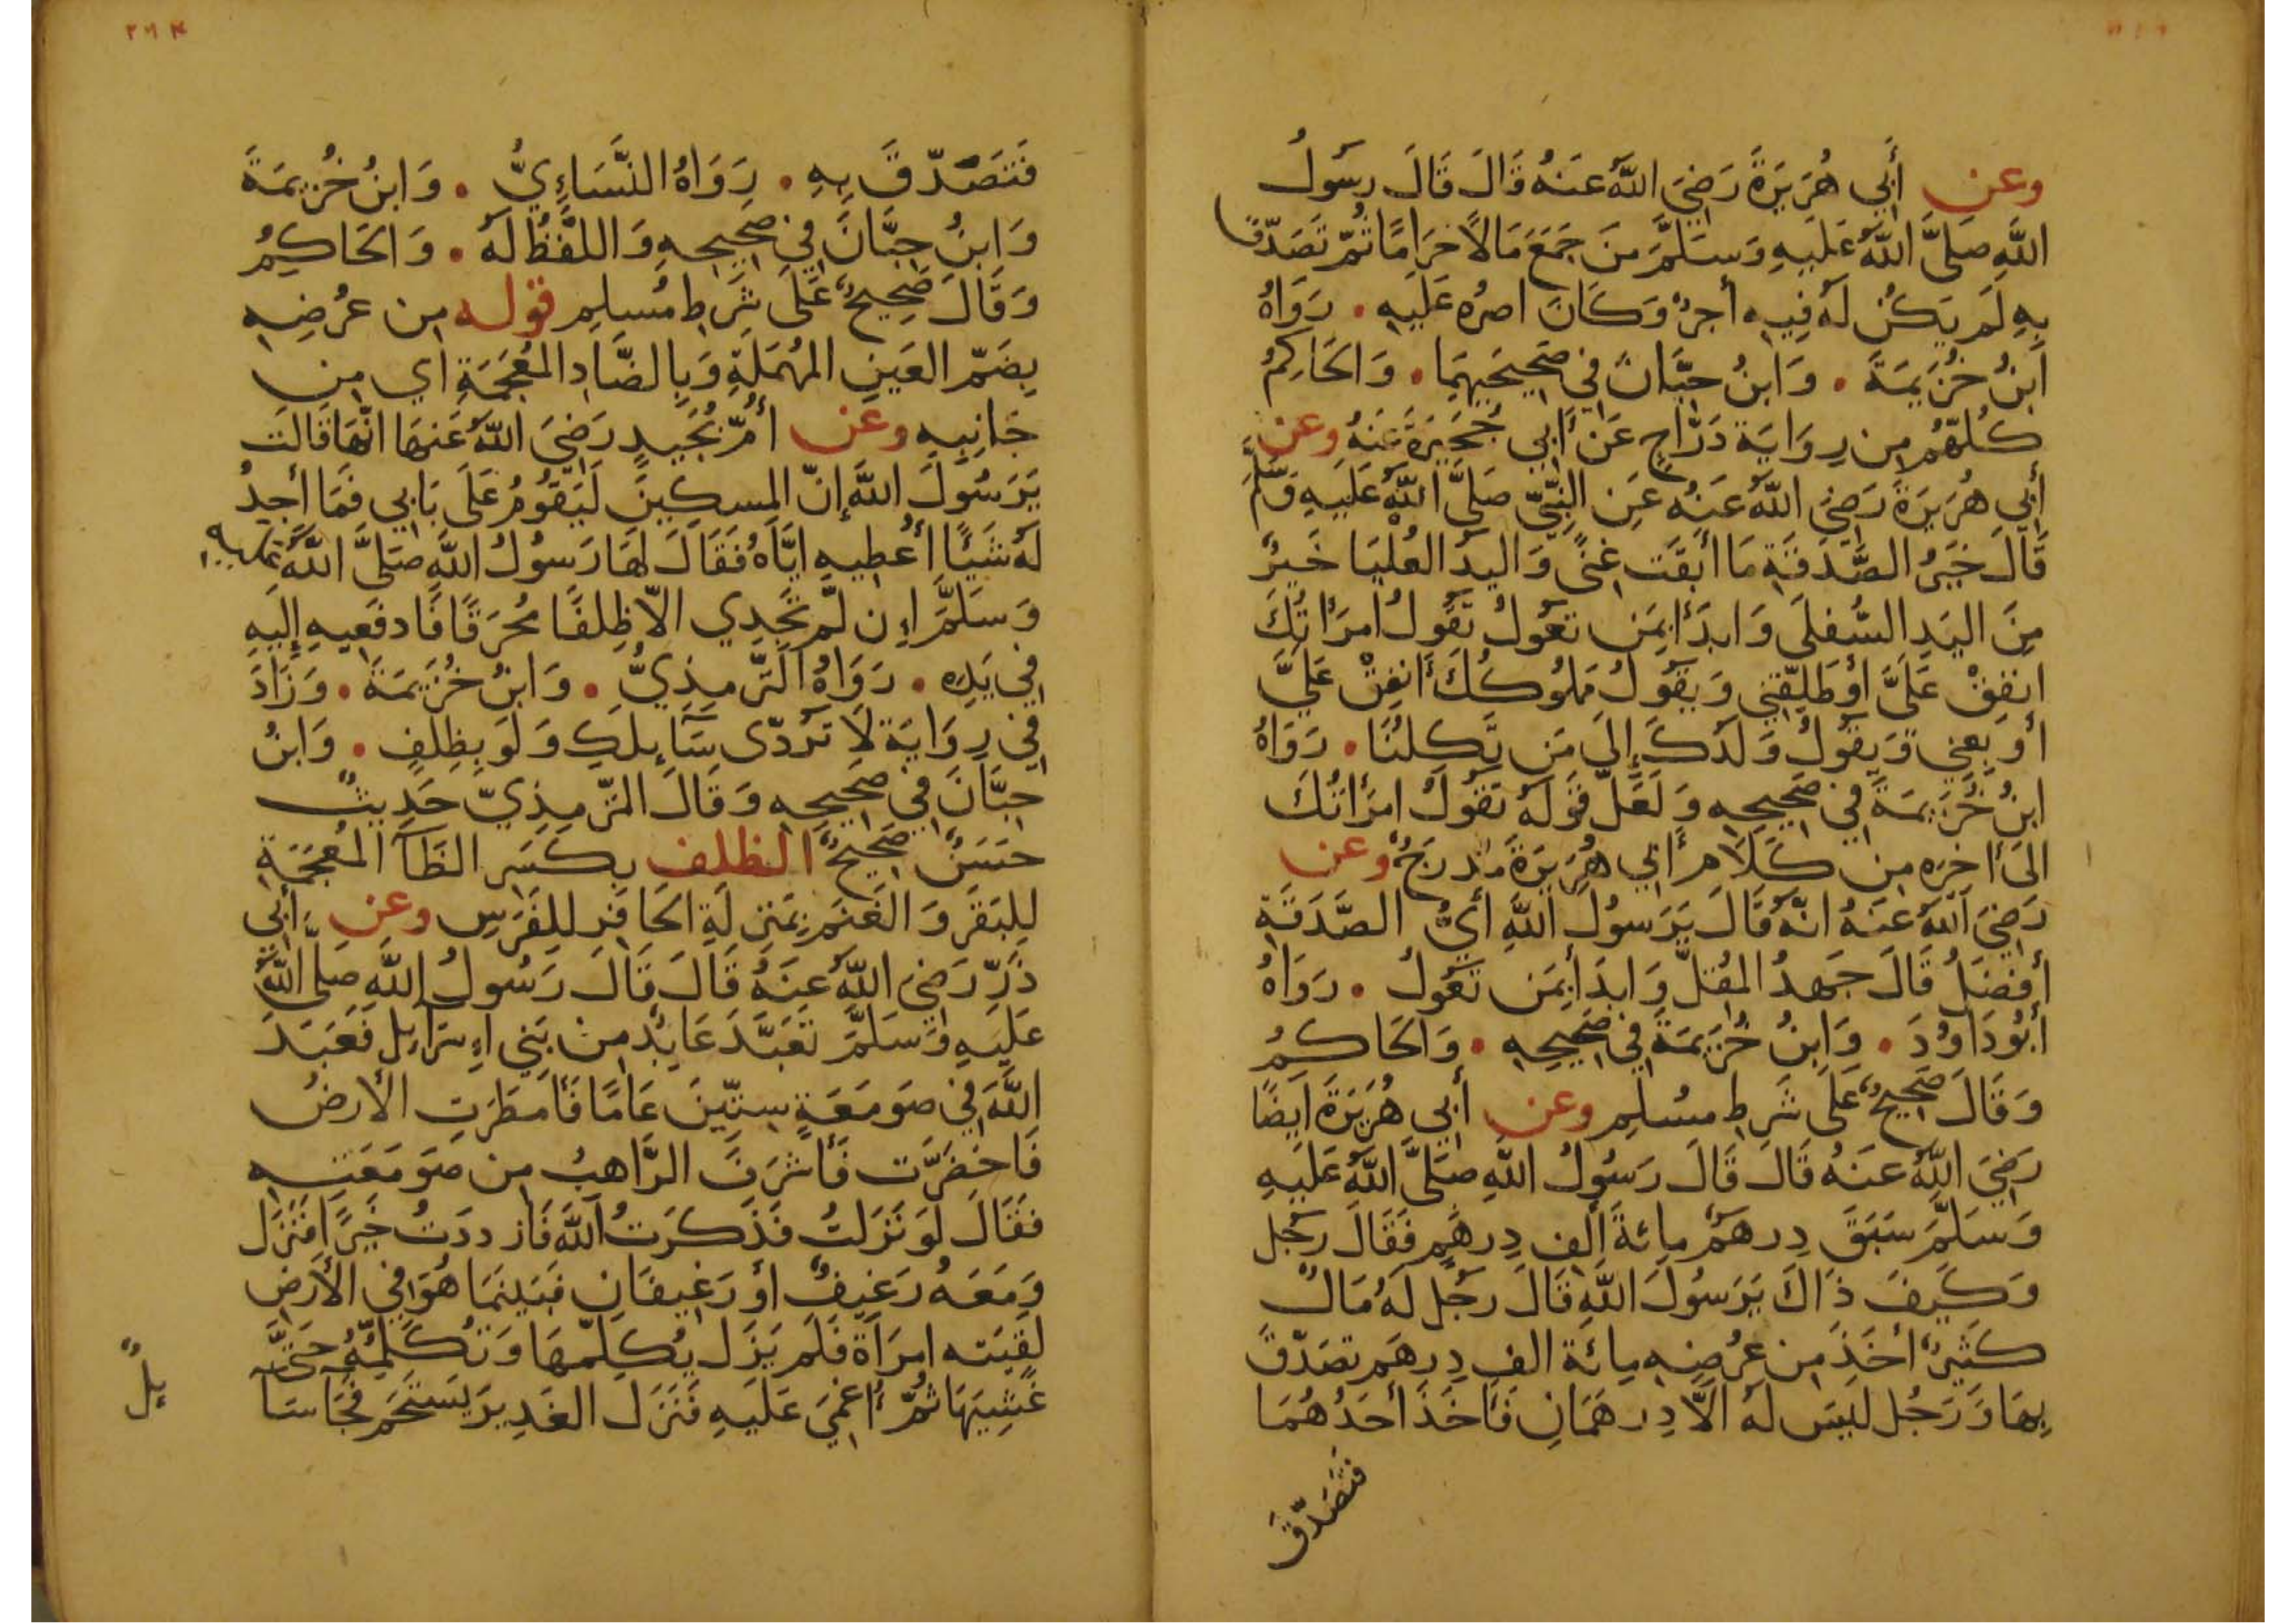 وعن أَبِي هُرَيرَةَ رَضِيَ اللَّهُ عَنهُ قَالَ قَالَ رسَولُ
اللَّهِ صَلَّى اللَّهُ عَلَيهِ وَسَلَّمَ مَن جَمَعَ مَالًا حَرَامًا ثُمّ تَصَدّقَ
بِهِ لَم يَكُن لَهُ فِيهِ أجرٌ وَكَانَ اصرُه عَلَيهِ . رَوَاهُ
ابنُ خُزَيمَةَ . وَابنُ حِبَّانَ فِي صَحِيحَيهِمَا . وَالحَاكِمُ
كُلّهُم مِن رِوَايَة دَرَّاجٍ عَن أَبِي حُجَيرَةَ عَنهُ وعن
أَبِي هُرَيرَةَ رَضِيَ اللَّهُ عَنهُ عَنِ النَّبِيّ صَلَّى اللَّهُ عَلَيهِ وَسَلَّمَ
قَالَ خَيرُ الصَّدَقَةِ مَا أبقَت غِنًى وَاليدُ العُليَا خَيرٌ
مِنَ اليَدِ السُّفلَى وَابدَأ بِمَن تعُولُ تَقُولُ امرَأتُكَ
انفِقْ عَلَيَّ أو طَلِّقنِي وَيقُولُ مَملُوكُكَ أنفِقْ عَلَيَّ
أو بِعنِي وَيقُولُ وَلَدُكَ إِلَى مَن تَكِلُنَا . رَوَاهُ
ابنُ خُزَيمَةَ فِي صَحِيحِهِ وَلَعَلَّ قَولَهُ تقُولُ امرَأتُكَ
الَى أخِرِه مِن كَلَامِ أَبِي هُرَيرَةَ مُدرَجٌ وعن
رَضِيَ اللَّهُ عَنهُ انّهُ قَالَ يَرَسُولَ اللَّهِ أَيُّ الصَّدَقَةِ
أفضَلُ قَالَ جَهدُ المُقلِّ وَابدَأ بِمَن تَعُولُ . رَوَاهُ
أبُودَاوُدَ . وَابنُ خُزَيمَةَ فِي صَحِيحِهِ . وَالحَاكِمُ
وَقَالَ صَحِيحٌ عَلَى شَرطِ مسُلِمٍ وعن أَبِي هُرَيرَةَ أيضًا
رَضِيَ اللَّهُ عَنهُ قَالَ قَالَ رَسُولُ اللَّهِ صلَّى اللَّهُ عَلَيهِ
وَسَلَّمَ سَبَقَ دِرهَمٌ مِائةَ ألفِ دِرهَمٍ فَقَالَ رَجُل
وَكَيفَ ذَاكَ يَرَسُولَ اللَّهِ قَالَ رَجُل لَهُ مَالٌ
كَثِيرٌ أخَذَ مِن عُرضِهِ مِائَة الفِ دِرهَم تصَدّقَ
بِهَا وَرَجُل لَيسَ لَهُ الَّا دِرهَمَانِ فَأخَذَ أحَدُهُمَا
فتَصَدّقَ
٢٦٤
فَتَصَدّقَ بِهِ . رَوَاهُ النَّسَاءِيُّ . وَابنُ خُزيمَةَ
وَابنُ حِبَّانَ فِي صَحِيحِهِ وَاللَّفظُ لَهُ . وَالحَاكِمُ
وَقَالَ صَحِيحٌ عَلَى شَرطِ مُسلِمٍ قوله مِن عُرضِهِ
بِضَمّ العَينِ المُهمَلَةِ وَبِالضَّادِ المُعجَمَةِ أي مِن
جَانِبِهِ وعن أُمّ بُجَيدٍ رَضِيَ اللَّهُ عَنهَا انّهَا قَالَت
يَرَسُولَ اللَّهِ إنّ المِسكِينَ لَيَقُومُ عَلَى بَابِي فَمَا أجِدُ
لَهُ شَيئًا أعُطِيهِ ايَّاهُ فَقَالَ لهَا رَسُولُ اللَّهِ صَلَّى اللَّهُ عَلَيهِ
وَسَلَّمَ اِن لَّم تَجِدِي الاّ ظِلفًا مُحرَقًا فَادفَعِيهِ إِلَيهِ
فِي يَدِه . رَوَاهُ التّرمِذِيُّ . وَابنُ خُزَيمَةَ . وَزَادَ
فِي رِوَايَة لَا تَرُدّى سَآئِلَكِ وَلَو بِظِلفٍ . وَابنُ
حِبَّانَ فِي صَحِيحِهِ وَقَالَ التّرمِذِيّ حَدِيثٌ
حَسَنٌ صَحِيحٌ الظلف بِكَسرِ الظَآ المُعجَمَةِ
لِلبَقَرِ وَالغَنَمِ بِمَنزِلَةِ الحَافِرِ لِلفَرَسِ وعن أَبِي
ذَرّ رَضِيَ اللَّهُ عَنهُ قَالَ قَالَ رَسُولُ اللَّهِ صَلَّى اللَّهُ
عَلَيهِ وَسَلَّمَ تَعَبَّدَ عَابِدٌ مِن بَنِي اِسرَايِل فَعَبَدَ
اللَّهَ فِي صَومَعَةٍ سِتِّينَ عَامًا فَأمطَرَتِ الأرضُ
فَاخضَرَّت فَأشرَفَ الرَّاهِبُ مِن صَومَعَتِهِ
فَقَالَ لَو نَزَلتُ فَذَكَرتُ اللَّهَ فَازددَتُ خَيرًا فَنَزَل
وَمَعَهُ رَغيِفٌ أو رَغِيفَانِ فَبَينَمَا هُوَ فِي الأَرضِ
لَقِيَته امرَأة فَلَم يَزَل يُكلِّمهَا وَتُكَلِّمُهُ حَتَّى
غَشِيَهَا ثُمَّ أُغمِيَ عَلَيهِ فَنَزَلَ الغَدِيرَ يَستَحِم فَجَآ سَآ
يِلٌ